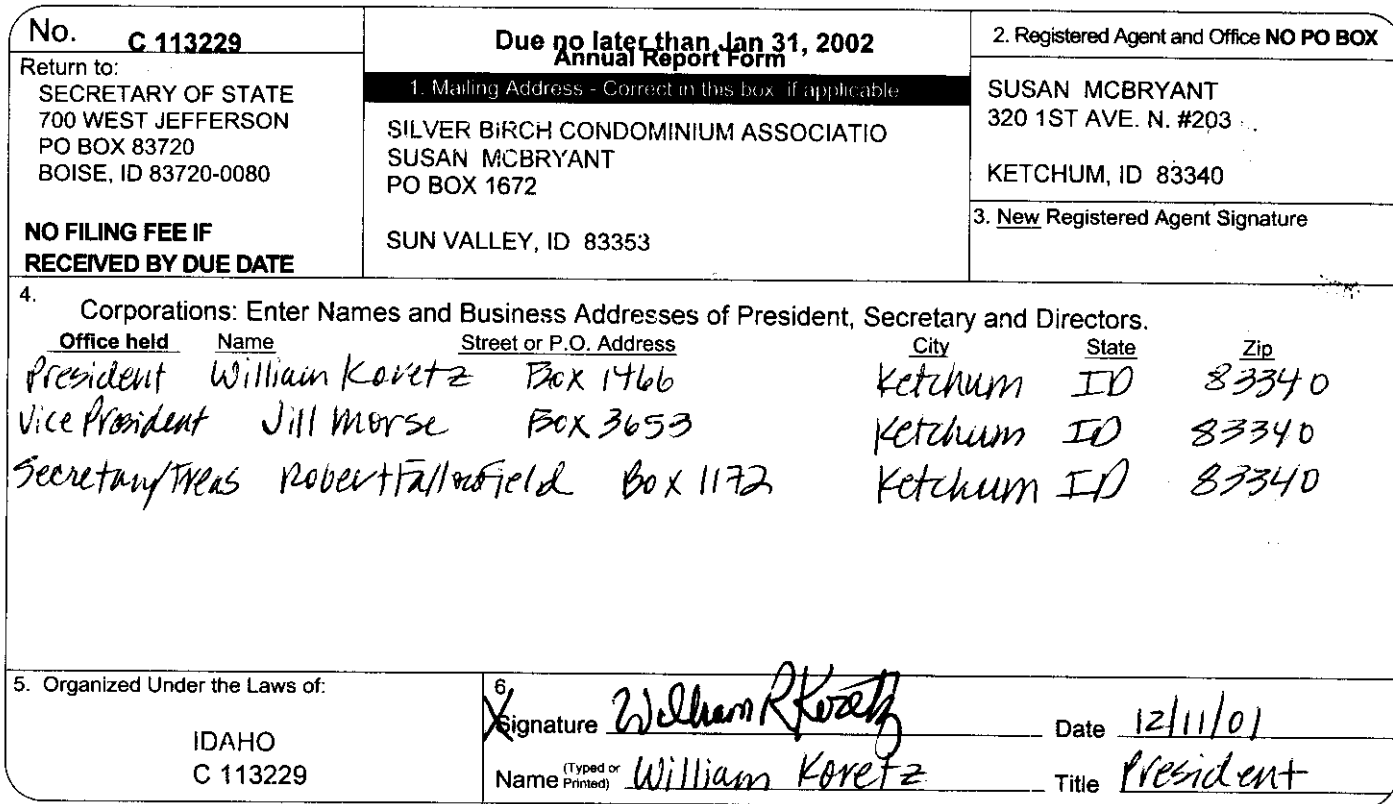 No. C 113229
Return to:
SECRETARY OF STATE
700 WEST JEFFERSON
PO BOX 83720
BOISE, ID 83720-0080
NO FILING FEE IF
RECEIVED BY DUE DATE
Due no later than Jan 31, 2002
Annual Report Form
1. Mailing Address - Correct in this box if applicable
SILVER BIRCH CONDOMINIUM ASSOCIATIO
SUSAN MCBRYANT
PO BOX 1672
SUN VALLEY, ID 83353
2. Registered Agent and Office NO PO BOX
SUSAN MCBRYANT
320 1ST AVE. N. #203
KETCHUM, ID 83340
3. New Registered Agent Signature
4. Corporations: Enter Names and Business Addresses of President, Secretary and Directors.
Office held Name Street or P.O. Address City State Zip
President William Koretz Box 1466 Ketchum ID 83340
Vice President Jill Morse Box 3653 Ketchum ID 83340
Secretary/Treas Robert Fallowfield Box 1172 Ketchum ID 83340
5. Organized Under the Laws of:
IDAHO
C 113229
6. X Signature William R Koretz Date 12/11/01
Name (Typed or Printed) William Koretz Title President